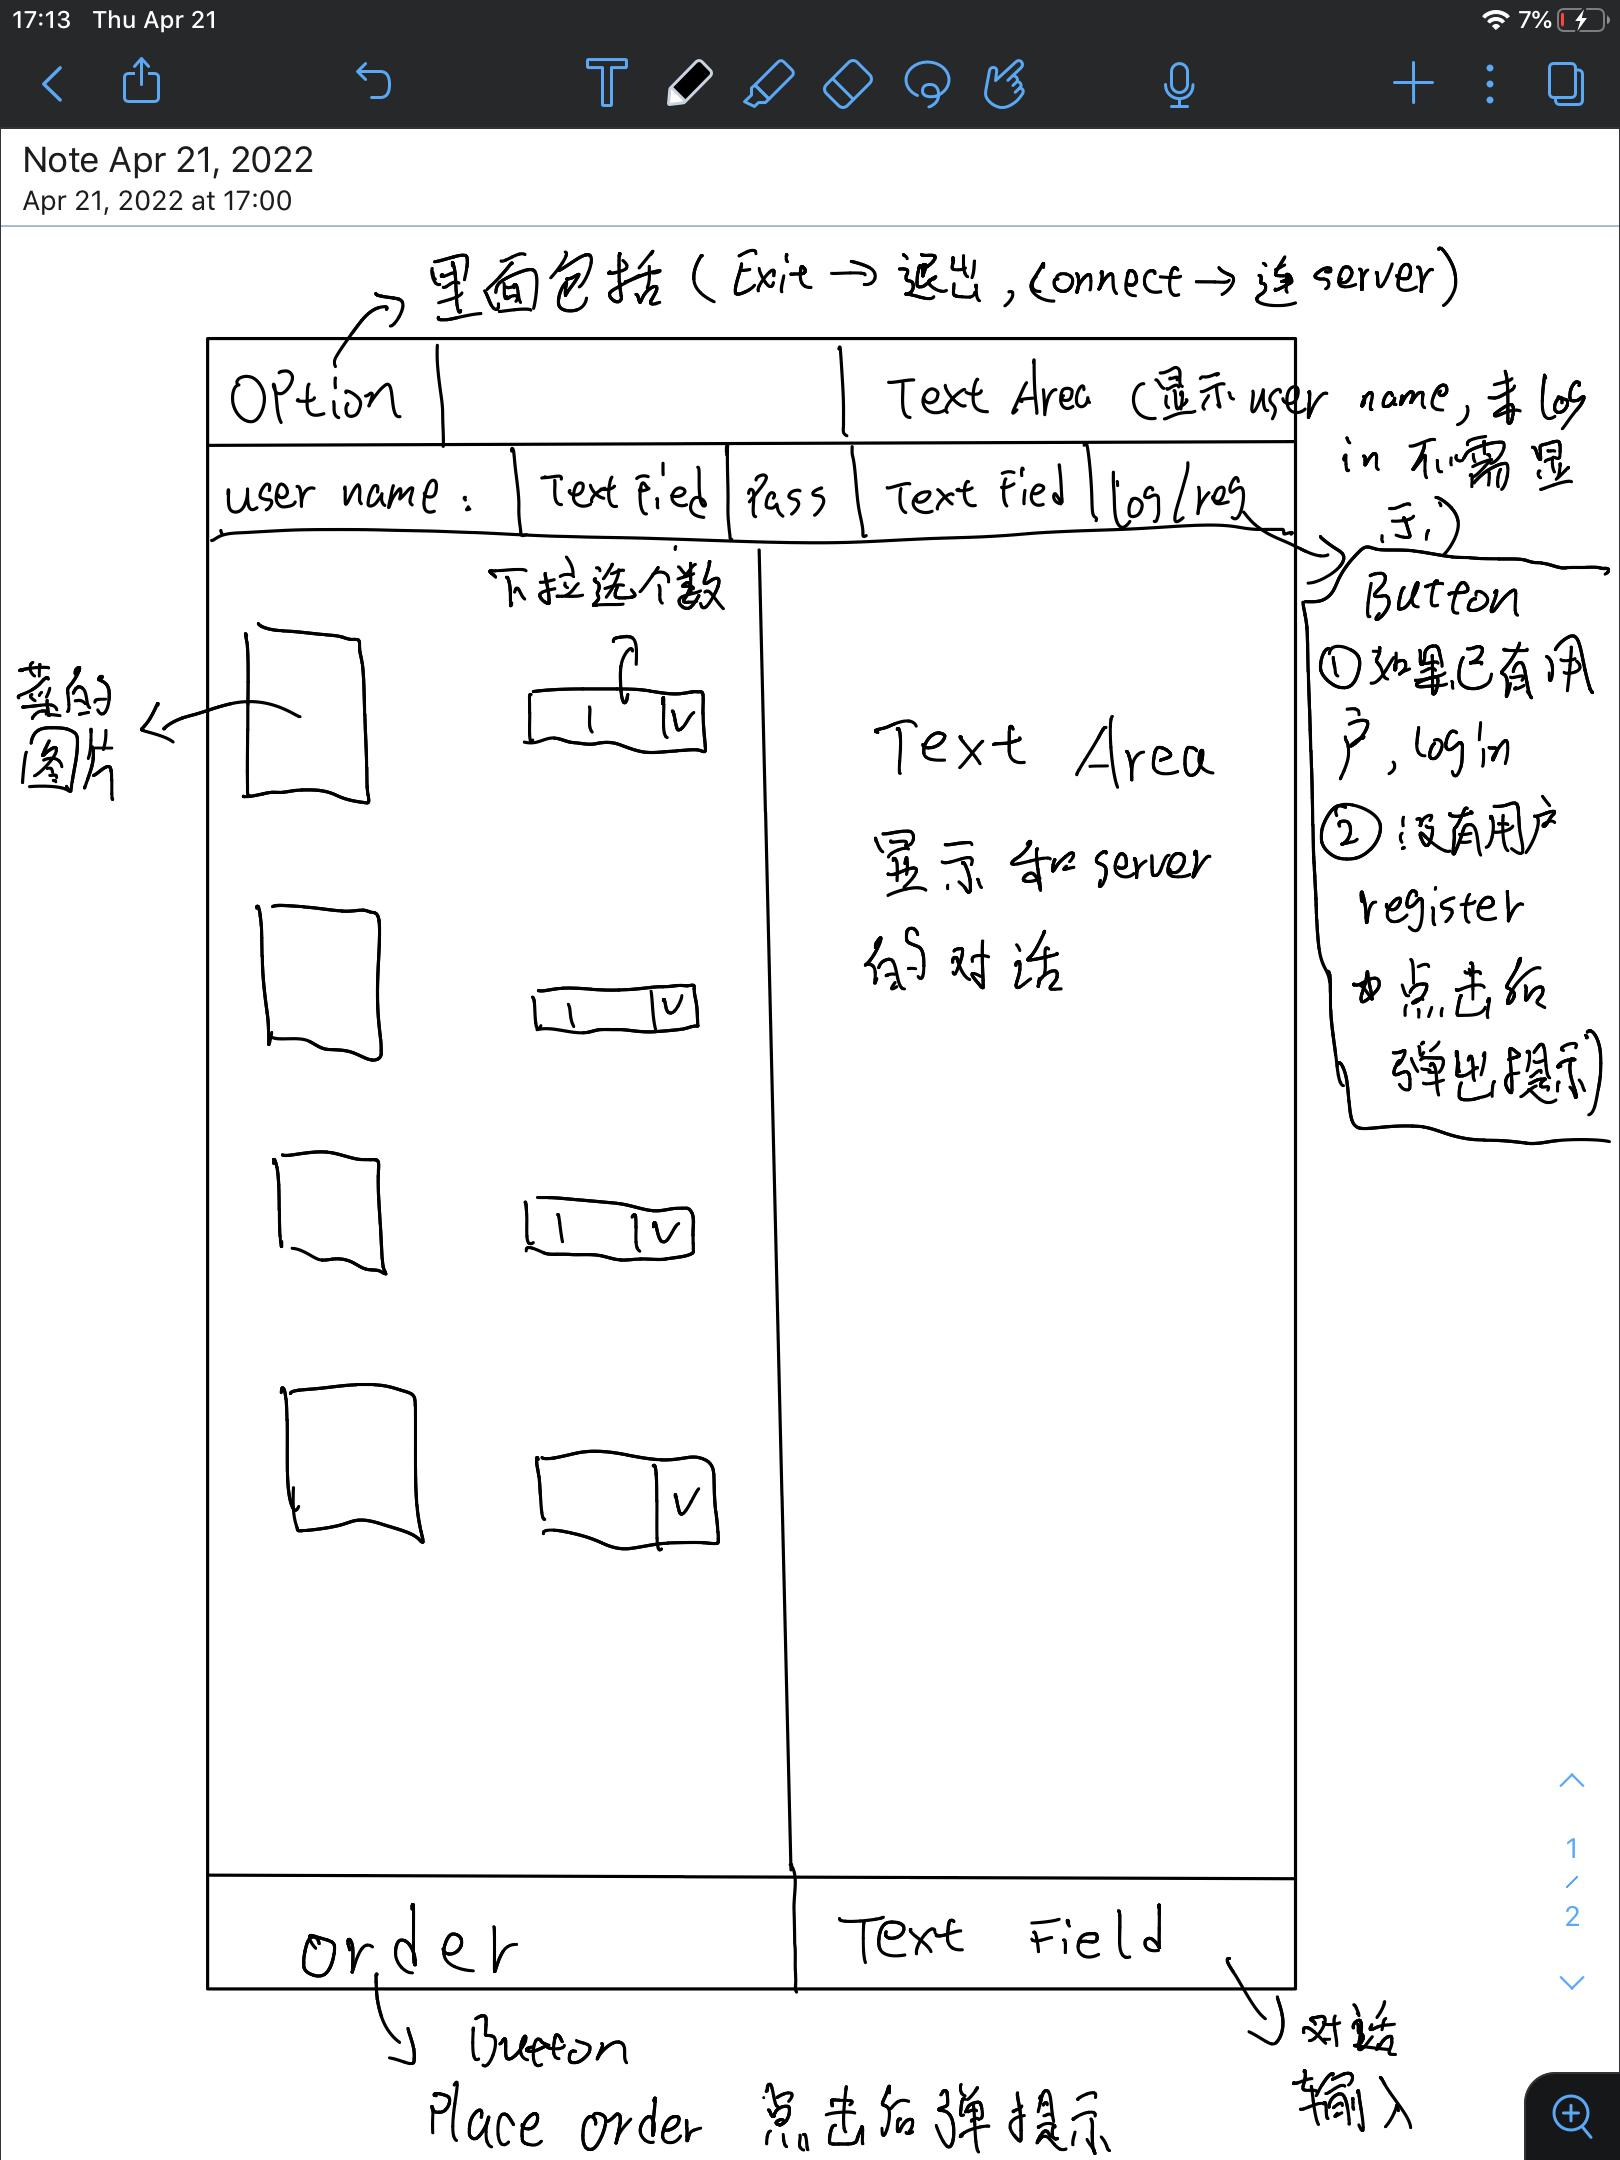 17:13 Thu Apr 21
7%
T
Note Apr 21, 2022
Apr 21, 2022 at 17:00
里面包括 (Exit → 退出, Connect → 连 server)
Option
Text Area (显示 user name, 未 log
in 不需显
示)
user name :
Text Fied
Pass
Text Fied
log/reg
下拉选个数
Button
① 如果已有用
户, login
② 没有用户
register
点击后
弹出提示)
菜的
图片
1 V
1 V
1 V
V
Text Area
显示和 server
的对话
1
/
2
order
Text Field
Button
Place order 点击后弹提示
对话
输入